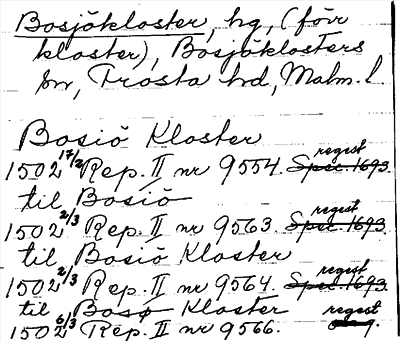 Bosjökloster, hg, (förr
kloster), Bosjöklosters
sn, Frosta hd, Malm. l.
Bosiö Kloster
1502 17/2 Rep. II nr 9554. Spec. 1693 regest
til Bosiö
1502 2/3 Rep. II nr 9563. Spec. 1693 regest
til Bosiö Kloster
1502 2/3 Rep. II nr 9564. Spec. 1693 regest
til Bosø Kloster
1502 6/3 Rep. II nr 9566. regest